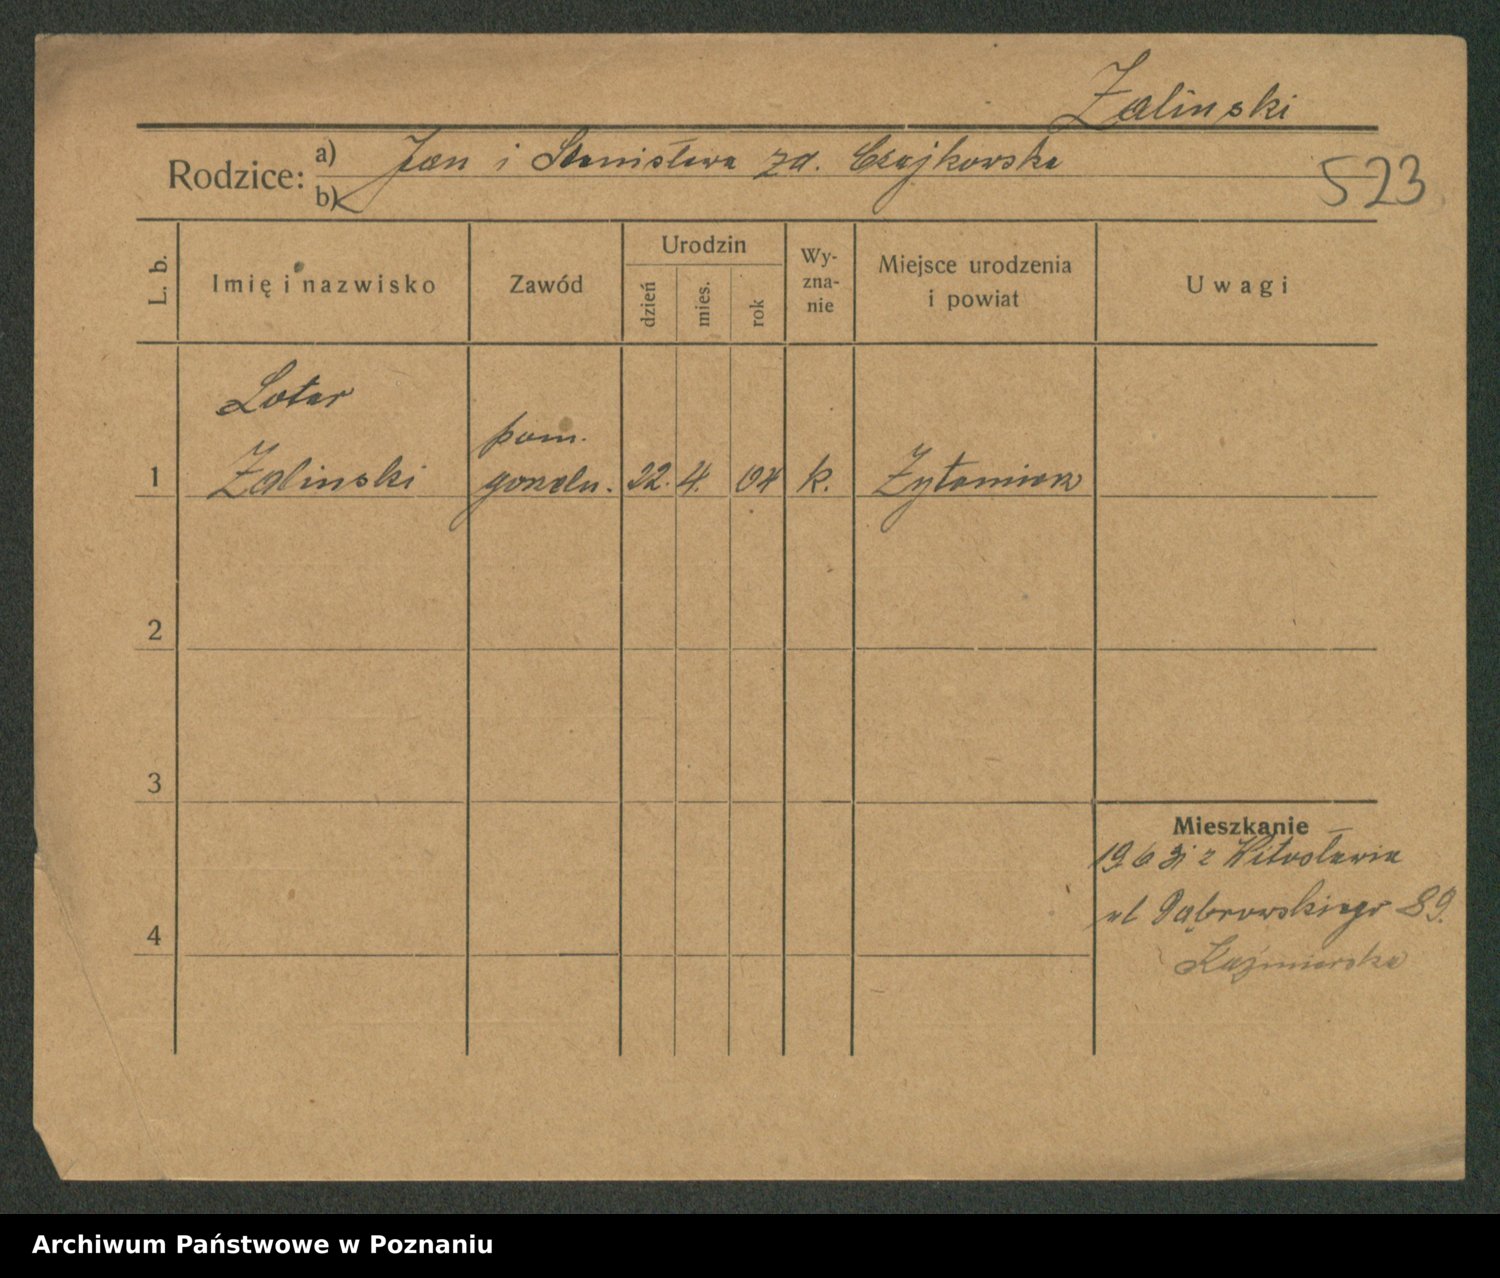 Zalinski
Rodzice: a) Jan i Stanisława zd. Czajkowska
b)
523
L. b. Imię i nazwisko Zawód Urodzin dzień mies. rok Wy-zna-nie Miejsce urodzenia i powiat Uwagi
Lotar
pom.
1 Zalinski gorzeln. 22. 4. 04 k. Żytomierz
2
3
Mieszkanie
z Witosławia
ul Dąbrowskiego 89.
4
Kaźmierska
Archiwum Państwowe w Poznaniu